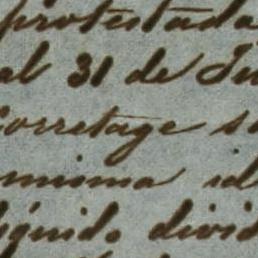 protestada
al 31 de Ju
Corretage s
misma id
líquido divid